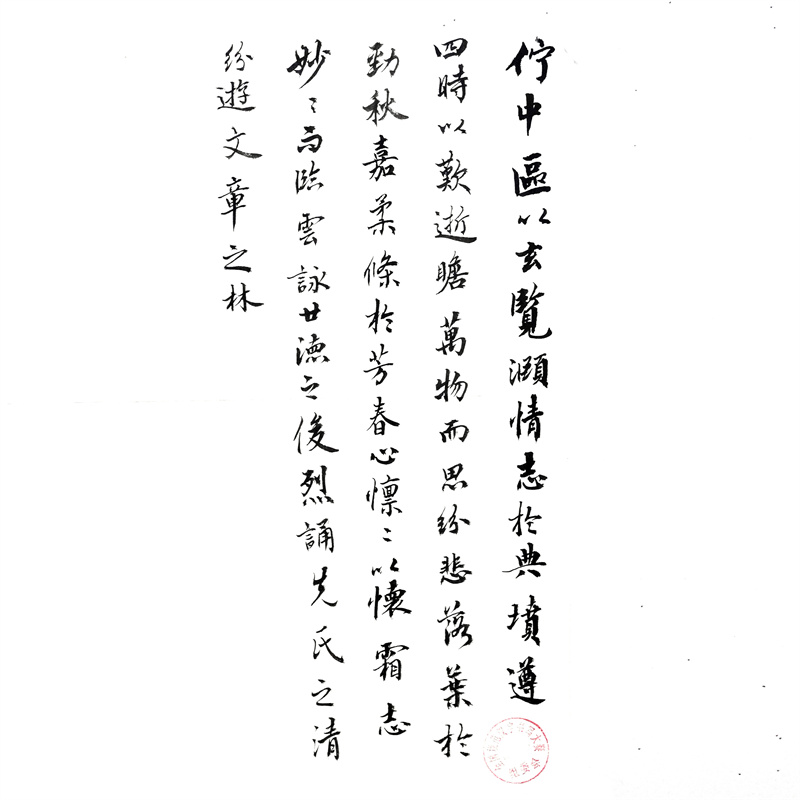 佇中區以玄覽頤情志於典墳遵
四時以歎逝瞻萬物而思紛悲落葉於
勁秋嘉柔條於芳春心懍〻以懷霜志
妙〻而臨雲詠世德之俊烈誦先氏之清
紛遊文章之林